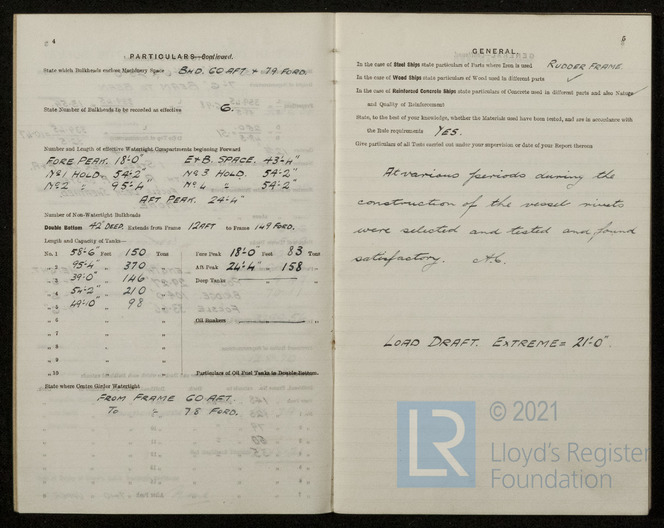 4
PARTICULARS—Continued.
State which Bulkheads enclose Machinery Space BHD. 60 AFT & 79 FORD.
State Number of Bulkheads to be recorded as effective 6.
Number and Length of effective Watertight Compartments beginning Forward
FORE PEAK. 18'-0" E & B. SPACE. 43'-4"
No 1 HOLD. 54'-2" No 3 HOLD. 54'-2"
No 2 " 95'-4" No 4 " 54'-2"
AFT PEAK. 24'-4"
Number of Non-Watertight Bulkheads
Double Bottom 42" DEEP. Extends from Frame 12 AFT to Frame 149 FORD.
Length and Capacity of Tanks—
No. 1 58'-6" Feet 150 Tons
" 2 95'-4" " 370 "
" 3 39'-0" " 146 "
" 4 54'-2" " 210 "
" 5 49'-10" " 98 "
" 6 " "
" 7 " "
" 8 " "
" 9 " "
" 10 " "
Fore Peak 18'-0" Feet 83 Tons
Aft Peak 24'-4" " 158 "
Deep Tanks
Oil Bunkers
Particulars of Oil Fuel Tanks in Double Bottom.
State where Centre Girder Watertight
FROM FRAME 60 AFT.
TO " 78 FORD.
5
GENERAL.
In the case of Steel Ships state particulars of Parts where Iron is used RUDDER FRAME.
In the case of Wood Ships state particulars of Wood used in different parts ✓
In the case of Reinforced Concrete Ships state particulars of Concrete used in different parts and also Nature
and Quality of Reinforcement
State, to the best of your knowledge, whether the Materials used have been tested, and are in accordance
with the Rule requirements YES.
Give particulars of all Tests carried out under your supervision or date of your Report thereon
At various periods during the
construction of the vessel rivets
were selected and tested and found
satisfactory.
LOAD DRAFT. EXTREME = 21'-0".
LR
© 2021
Lloyd's Register
Foundation